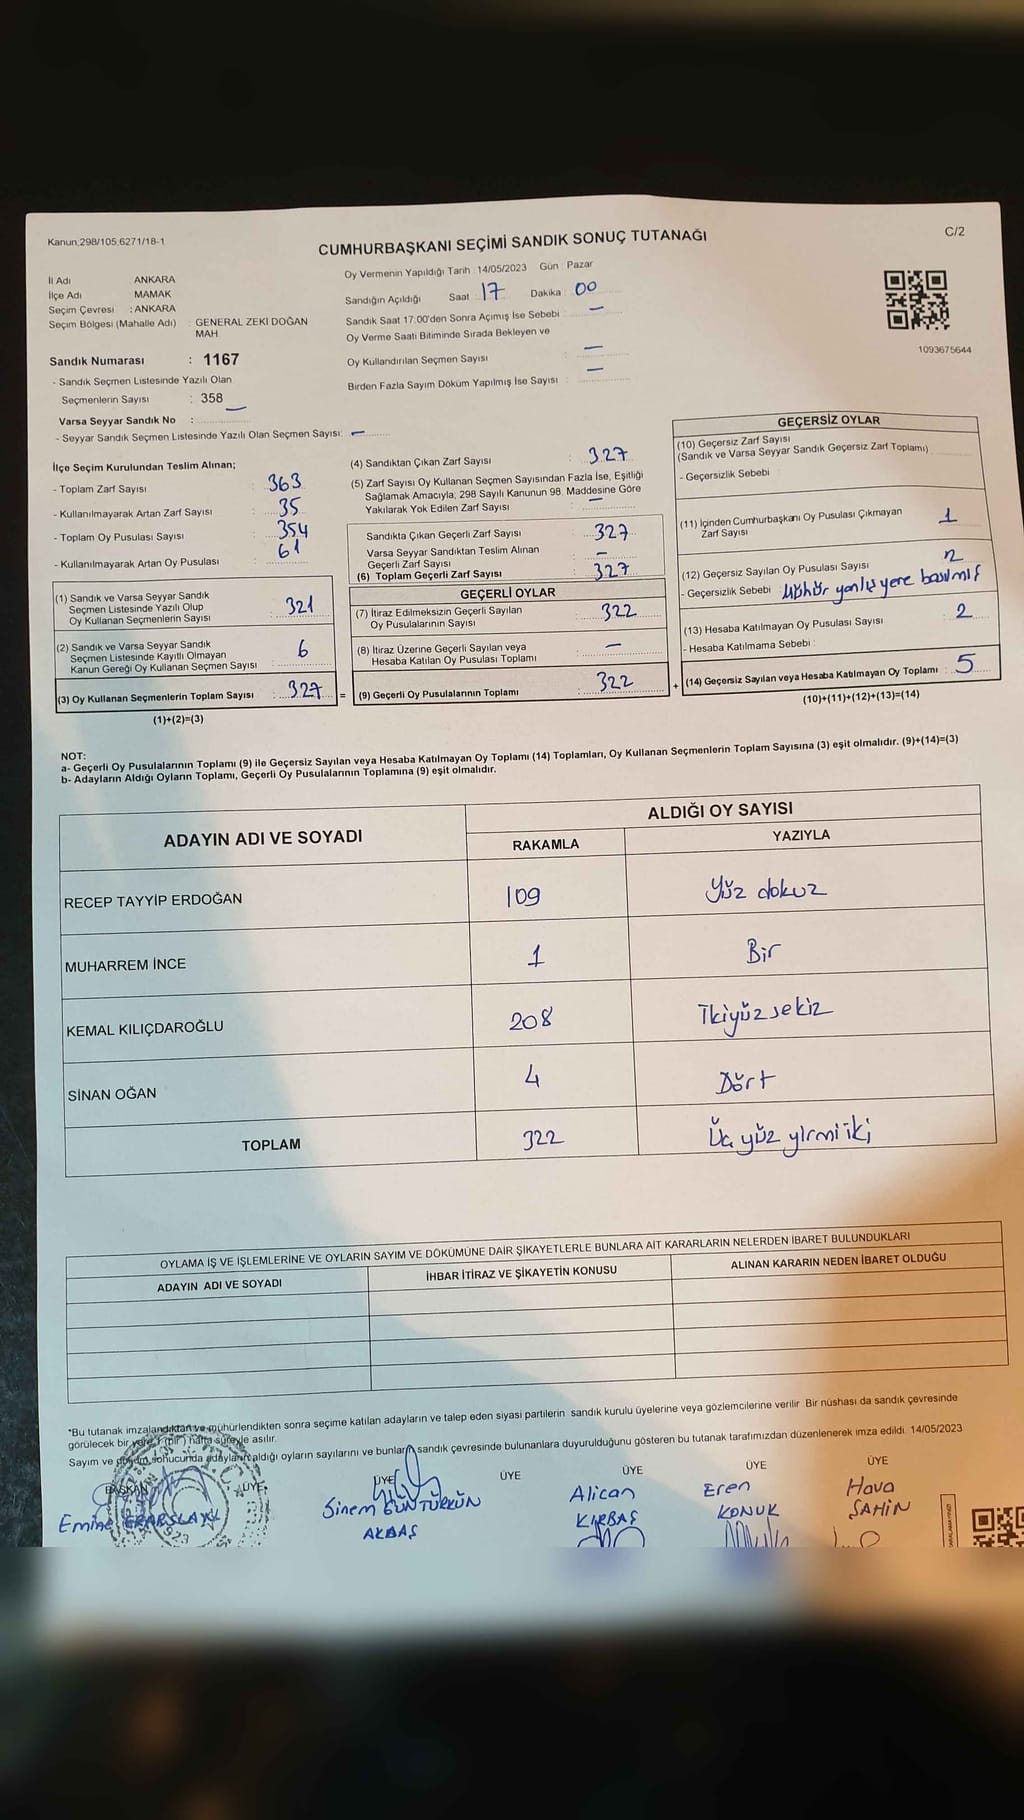 Kanun,298/105,6271/18-1
C/2
CUMHURBAŞKANI SEÇİMİ SANDIK SONUÇ TUTANAĞI
İl Adı ANKARA
İlçe Adı MAMAK
Seçim Çevresi : ANKARA
Seçim Bölgesi (Mahalle Adı) : GENERAL ZEKİ DOĞAN
MAH.
Sandık Numarası : 1167
- Sandık Seçmen Listesinde Yazılı Olan
Seçmenlerin Sayısı : 358
Varsa Seyyar Sandık No : —
- Seyyar Sandık Seçmen Listesinde Yazılı Olan Seçmen Sayısı: —
Oy Vermenin Yapıldığı Tarih : 14/05/2023 Gün : Pazar
Sandığın Açıldığı Saat 17 Dakika 00
Sandık Saat 17:00'den Sonra Açımış İse Sebebi : —
Oy Verme Saati Bitiminde Sırada Bekleyen ve
Oy Kullandırılan Seçmen Sayısı : —
Birden Fazla Sayım Döküm Yapılmış İse Sayısı : —
1093675644
İlçe Seçim Kurulundan Teslim Alınan;
- Toplam Zarf Sayısı : 363
- Kullanılmayarak Artan Zarf Sayısı : 35
- Toplam Oy Pusulası Sayısı : 354
- Kullanılmayarak Artan Oy Pusulası : 61
(1) Sandık ve Varsa Seyyar Sandık
Seçmen Listesinde Yazılı Olup
Oy Kullanan Seçmenlerin Sayısı : 321
(2) Sandık ve Varsa Seyyar Sandık
Seçmen Listesinde Kayıtlı Olmayan
Kanun Gereği Oy Kullanan Seçmen Sayısı : 6
(3) Oy Kullanan Seçmenlerin Toplam Sayısı : 327 =
(1)+(2)=(3)
(4) Sandıktan Çıkan Zarf Sayısı : 327
(5) Zarf Sayısı Oy Kullanan Seçmen Sayısından Fazla İse, Eşitliği
Sağlamak Amacıyla, 298 Sayılı Kanunun 98. Maddesine Göre
Yakılarak Yok Edilen Zarf Sayısı : —
Sandıkta Çıkan Geçerli Zarf Sayısı : 327
Varsa Seyyar Sandıktan Teslim Alınan
Geçerli Zarf Sayısı : —
(6) Toplam Geçerli Zarf Sayısı : 327
GEÇERLİ OYLAR
(7) İtiraz Edilmeksizin Geçerli Sayılan
Oy Pusulalarının Sayısı : 322
(8) İtiraz Üzerine Geçerli Sayılan veya
Hesaba Katılan Oy Pusulası Toplamı : —
(9) Geçerli Oy Pusulalarının Toplamı : 322 +
GEÇERSİZ OYLAR
(10) Geçersiz Zarf Sayısı
(Sandık ve Varsa Seyyar Sandık Geçersiz Zarf Toplamı)
- Geçersizlik Sebebi :
(11) İçinden Cumhurbaşkanı Oy Pusulası Çıkmayan
Zarf Sayısı : 1
(12) Geçersiz Sayılan Oy Pusulası Sayısı : 2
- Geçersizlik Sebebi : Mühür yanlış yere basılmış
(13) Hesaba Katılmayan Oy Pusulası Sayısı : 2
- Hesaba Katılmama Sebebi :
(14) Geçersiz Sayılan veya Hesaba Katılmayan Oy Toplamı : 5
(10)+(11)+(12)+(13)=(14)
NOT:
a- Geçerli Oy Pusulalarının Toplamı (9) ile Geçersiz Sayılan veya Hesaba Katılmayan Oy Toplamı (14) Toplamları, Oy Kullanan Seçmenlerin Toplam Sayısına (3) eşit olmalıdır. (9)+(14)=(3)
b- Adayların Aldığı Oyların Toplamı, Geçerli Oy Pusulalarının Toplamına (9) eşit olmalıdır.
ADAYIN ADI VE SOYADI ALDIĞI OY SAYISI
RAKAMLA YAZIYLA
RECEP TAYYİP ERDOĞAN 109 Yüz dokuz
MUHARREM İNCE 1 Bir
KEMAL KILIÇDAROĞLU 208 İkiyüzsekiz
SİNAN OĞAN 4 Dört
TOPLAM 322 Üç yüz yirmi iki
OYLAMA İŞ VE İŞLEMLERİNE VE OYLARIN SAYIM VE DÖKÜMÜNE DAİR ŞİKAYETLERLE BUNLARA AİT KARARLARIN NELERDEN İBARET BULUNDUKLARI
ADAYIN ADI VE SOYADI İHBAR İTİRAZ VE ŞİKAYETİN KONUSU ALINAN KARARIN NEDEN İBARET OLDUĞU
*Bu tutanak imzalandıktan ve mühürlendikten sonra seçime katılan adayların ve talep eden siyasi partilerin sandık kurulu üyelerine veya gözlemcilerine verilir. Bir nüshası da sandık çevresinde
görülecek bir yere 1 (bir) hafta süreyle asılır.
Sayım ve döküm sonucunda adayların aldığı oyların sayılarını ve bunların sandık çevresinde bulunanlara duyurulduğunu gösteren bu tutanak tarafımızdan düzenlenerek imza edildi. 14/05/2023
BAŞKAN ÜYE ÜYE ÜYE ÜYE ÜYE ÜYE
Emine ERARSLAN Sinem GÜNTÜRKÜN Alican Eren Hava
AKBAŞ KIRBAŞ KONUK ŞAHİN